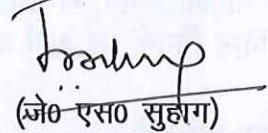 (जे0 एस0 सुहाग)